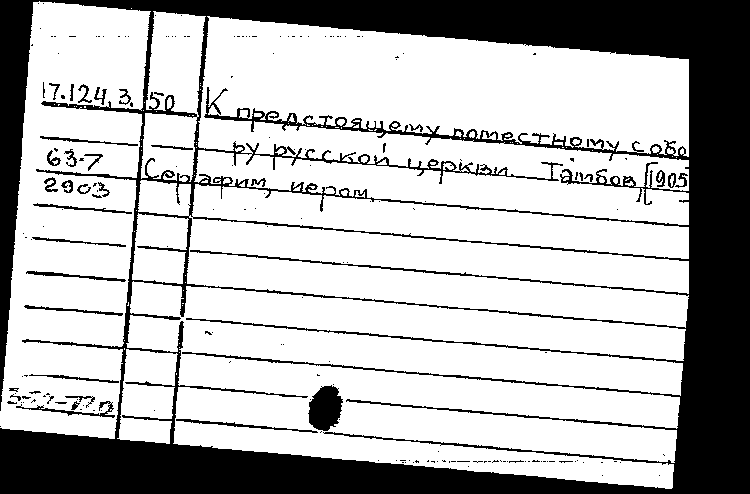 17.124.3.50 К предстоящему поместному собо
ру русской церкви. Тамбов, [1905
63-7
2903 Серафим, иером.